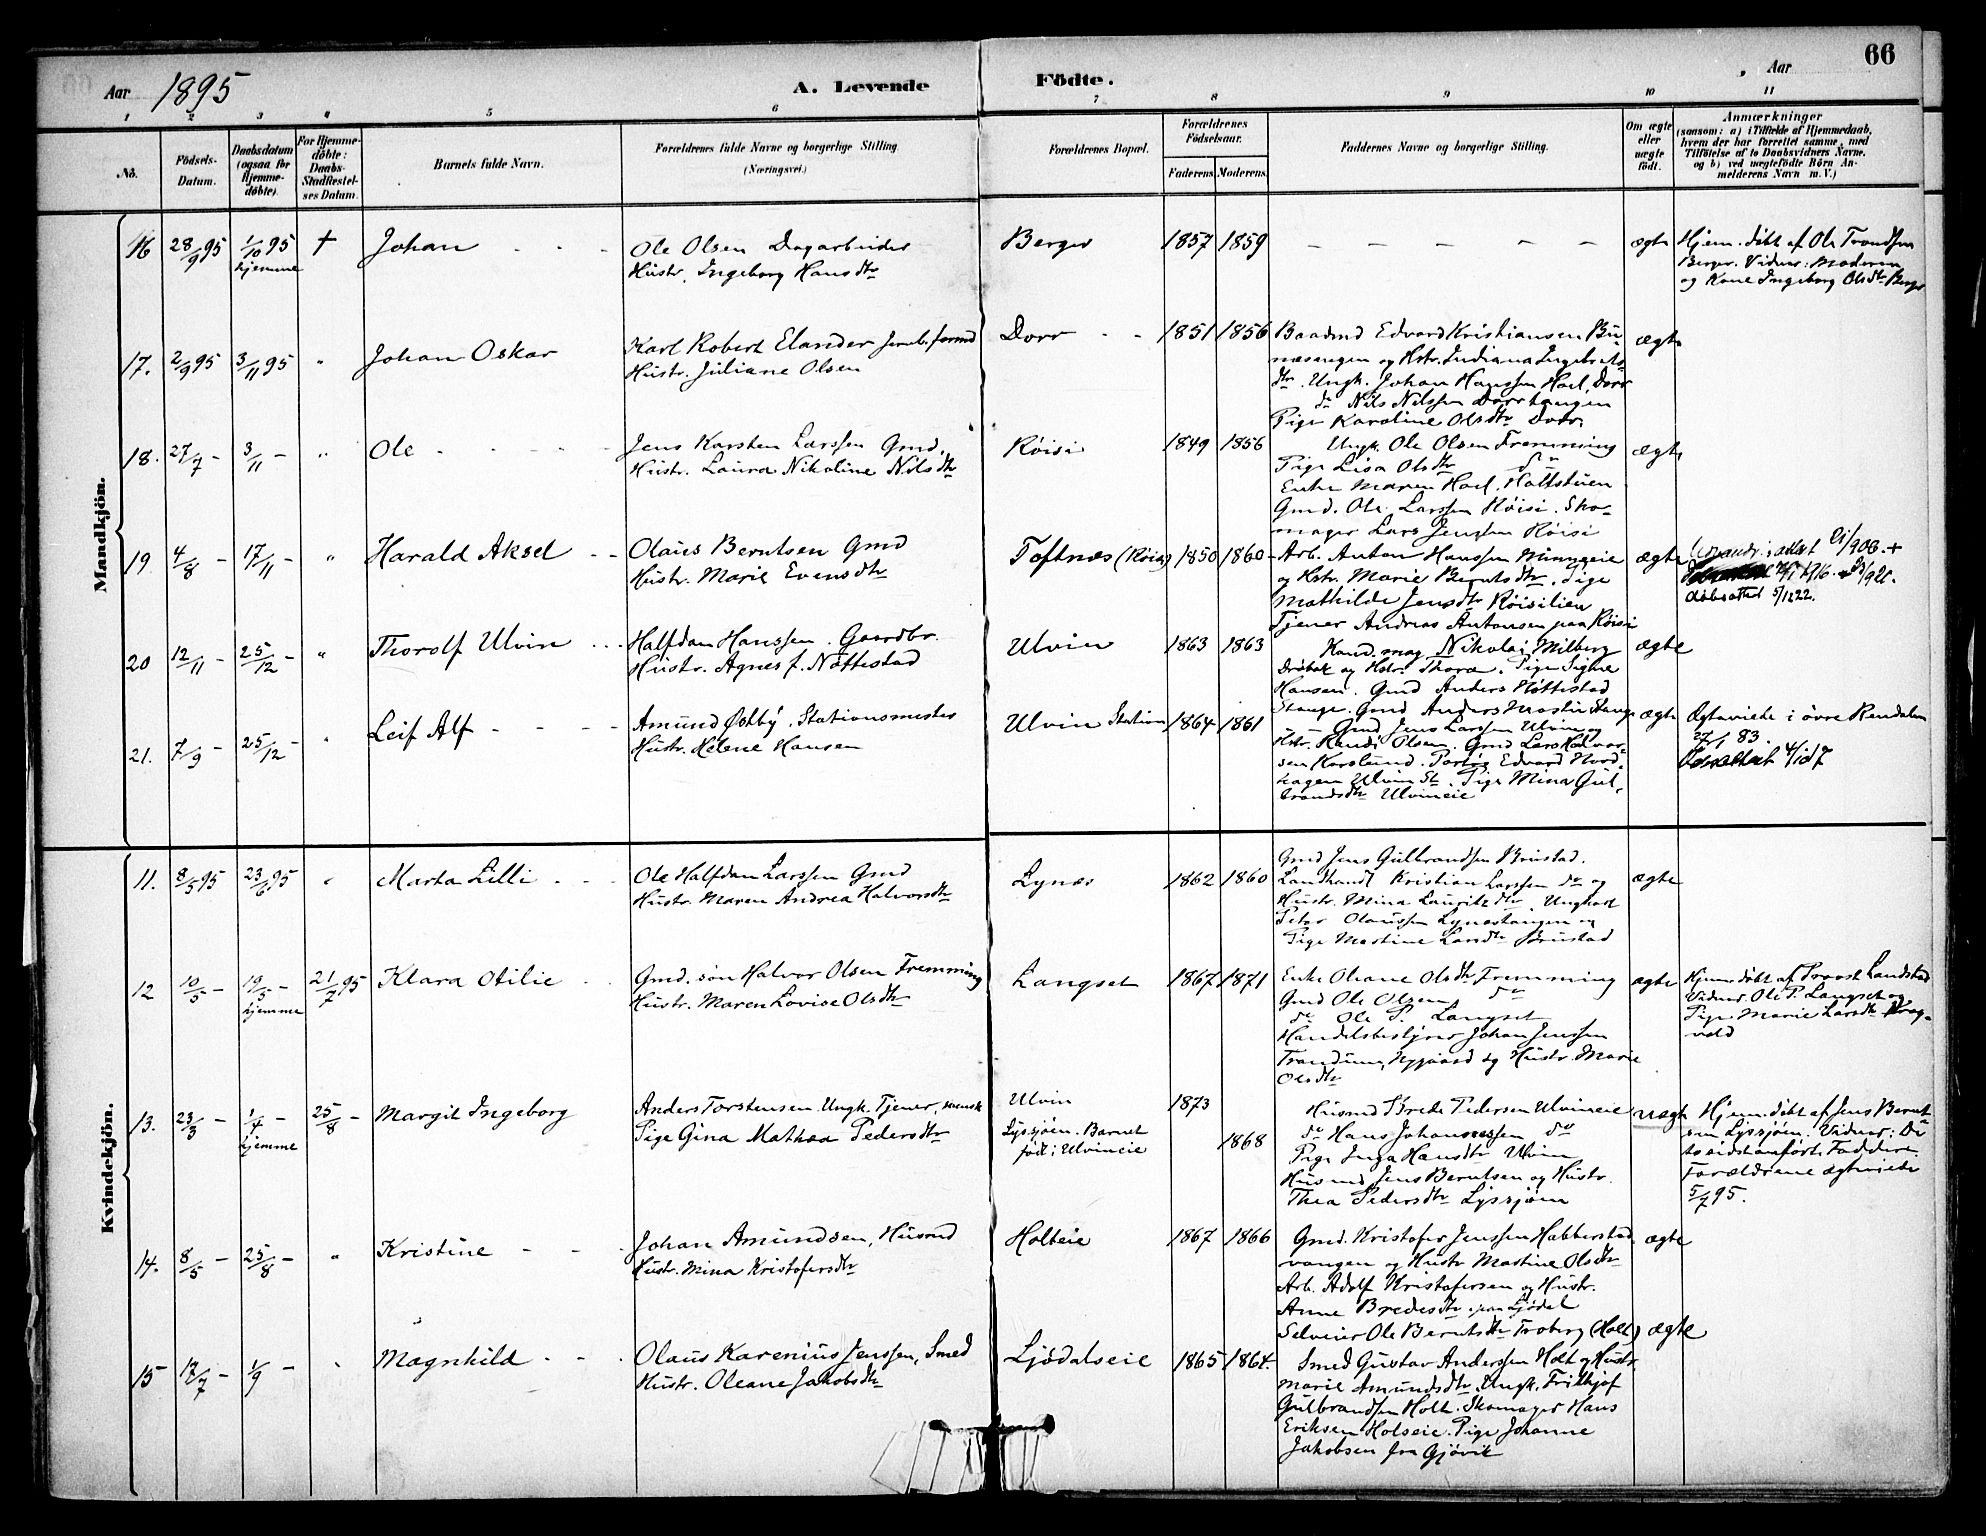 66
Aar 1895
A. Levende
Födte.
Aar
1 2 3 4 5 6 7 8 9 10 11
No.
Födsels-Datum.
Daabsdatum (ogsaa for Hjemme-døbte).
For Hjemme-döbte: Daabs-Stadfæstel-ses Datum.
Barnets fulde Navn.
Forældrenes fulde Navne og borgerlige Stilling. (Næringsvei.)
Forældrenes Bopæl.
Forældrenes Födselsaar.
Faderens. Moderens.
Faddernes Navne og borgerlige Stilling.
Om ægte eller uægte födt.
Anmærkninger
(saasom: a) i Tilfælde af Hjemmedaab,
hvem der har forrettet samme, med
Tilföielse af to Daabsvidners Navne,
og b) ved uægtefödte Börn An-
melderens Navn m. V.)
Mandkjön.
16 28/9 95 1/10 95 hjemme + Johan
Ole Olsen Dagarbeider
Hustr. Ingeborg Hansdtr
Berger 1857 1859 — — — — — ægte
Hjem. døbt af Ole Trondsen
Berger. Vidner: Moderen
og Kone Ingeborg Olsdtr Berger
17. 2/9 95 3/11 95 " Johan Oskar
Karl Robert Elander Jernb. formd
Hustr. Juliane Olsen
Dorr 1851 1856
Baadmd Edvard Kristiansen Bu-
næsengen og Hstr. Indiana Ingebrets-
dtr. Ungk. Johan Hanssen Hoel, Dorr
do Nils Nilssen Dorrhaugen
Pige Karoline Olsdtr Dorr
ægte
18. 27/7 – 3/11 – " Ole
Jens Karsten Larssen Gmd.
Hustr. Laura Nikoline Nilsdtr
Røisi 1849 1856
Ungk. Ole Olsen Fremming
Pige Lisa Olsdtr do
Enke Maren Hoel. Holtstuen
Gmd. Ole Larssen Røisi. Sko-
mager Lars Jenssen Røisi
ægte
19 4/8 – 17/11 – " Harald Aksel
Olaus Berntsen Gmd
Hustr. Marie Evensdtr
Toftnæs (Røisi) 1850 1860
Arb. Anton Hanssen Minneeie
og Hstr. Marie Berntsdtr. Pige
Mathilde Jensdtr Røisilien
Tjener Andreas Antonsen paa Røisi
ægte
døbsattest 5/12 22.
20 12/11 – 25/12 – " Thorolf Ulvin
Halfdan Hanssen. Gaardbr.
Hustr. Agnes f. Nøttestad
Ulvin 1863 1863
Kand. mag Nikolai Milberg
Drøbak og Hstr. Thora. Pige Signe
Hansen. Gmd Anders Nøttestad
Stange. Gmd Anders Mostu Stange
ægte
21. 7/9 – 25/12 – " Leif Alf
Amund Østby. Stationsmester
Hustr. Helene Hansen
Ulvin Station 1864 1861
Gmd Jens Larssen Ulvin og
Hstr. Randi Olsen. Gmd Lars Halvor-
sen Korslund. Edvard Nord-
hagen Ulvin St. Pige Mina Gul-
brandsdtr Ulvineie
ægte
Ægteviede i øvre Rendalen
27/1 83.
Kvindekjön.
11. 8/5 95 23/6 95 " Marta Lilli
Ole Halfdan Larssen Gmd
Hustr. Maren Andrea Halvorsdtr
Lynæs 1862 1860
Gmd Jens Gulbrandsen Brustad.
Landhandl Kristian Larssen do og
Hustr. Mina Lauritzdtr. Ungkarl
Peter Olaussen Lynæstangen og
Pige Mastine Larsdtr Brustad
ægte
12 10/5 – 19/5 – hjemme 21/7 95 Klara Otilie
Gmd. søn Halvor Olsen Fremming
Hustr. Maren Lovise Olsdtr
Langset 1867 1871
Enke Oleane Olsdtr Fremming
Gmd Ole Olsen do
do Ole P. Langset
Handelsbestyrer Johan Jenssen
Trandum, Nygaard og Hustr. Marie
Olsdtr
ægte
Hjem. døbt af Provst Landstad
Vidner. Ole P. Langset og
Pige Marie Larsdtr Krog-
vold
13. 23/3 – 1/4 – hjemme 25/8 – Margit Ingeborg
Anders Torstensen Ungk. Tjener, svensk
Pige Gina Mathea Pedersdtr
Ulvin
Lysjøen. Barnet
født i Ulvineie
1873
1868
Husmd Brede Pedersen Ulvineie
do Hans Johannessen do
Pige Inga Hansdtr Ulvin
Husmd Jens Berntsen og Hustr.
Thea Pedersdtr Lysjøen
uægte
Hjem. døbt af Jens Bernt-
sen Lysjøen. Vidner: De
to sidstanførte Faddere
Forældrene ægteviede
5/7 95.
14. 8/5 – 25/8 – " Kristine
Johan Amundsen, Husmd
Hustr. Mina Kristofersdtr
Holteie 1867 1866
Gmd. Kristofer Jenssen Habberstad
vangen og Hustr Martine Olsdtr
Arb. Adolf Kristofersen og Hustr.
Anne Bredesdtr. paa Ljødal
Selveier Ole Berntsdtr Troberg (Holt)
ægte
15 17/7 – 1/9 – " Magnhild
Olaus Karenius Jenssen, Smed
Hustr. Oleane Jakobsdtr
Ljødalseie 1865 1864.
ægte
Smed Gustav Anderssen Holt og Hustr.
Marie Amundsdtr. Ungk. Frithjof
Gulbrandsen Holt. Skomager Hans
Eriksen Holseie. Pige Johanne
Jakobsen fra Gjøvik